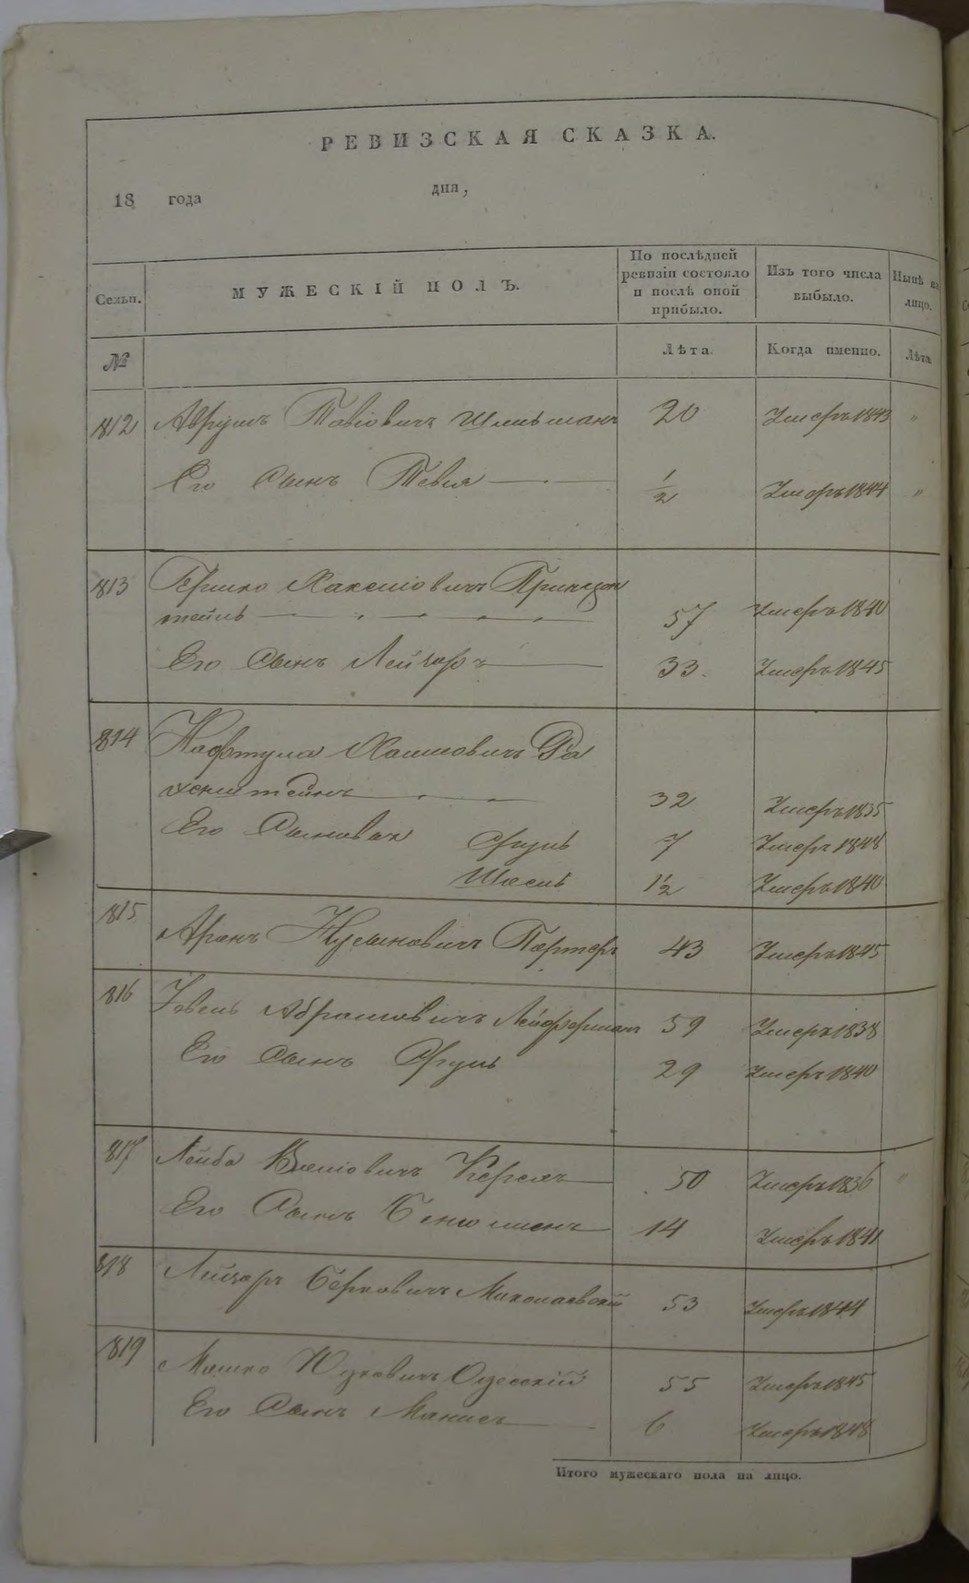 РЕВИЗСКАЯ СКАЗКА.
18 года дня,
Семьи. МУЖЕСКІЙ ПОЛЪ. По послѣдней ревизіи состояло и послѣ оной прибыло. Изъ того числа выбыло. Нынѣ на лицо.
№ Лѣта. Когда именно. Лѣта
812 Аврумъ Тавіовичъ 20 Умеръ 1843 "
Его сынъ Тевія 1/2 Умеръ 1844 "
813 Гершко
тейнъ 57 Умеръ 1840
Его сынъ Лейзаръ 33. Умеръ 1845
814 Нафтула Хаимовичъ Ра
хенштейнъ 32 Умеръ 1835
Его Сыновья Сруль 7 Умеръ 1848
1/2 Умеръ 1840
815 Аронъ Нусыновичъ Портеръ 43 Умеръ 1845
816 Абрамовичъ 59 Умеръ 1838
Его сынъ Сруль 29 Умеръ 1840
817 Лейба 50 Умеръ 1836 "
Его Сынъ Беньюминъ 14 Умеръ 1841
818 Лейзаръ Берковичъ Николаевскій 53 Умеръ 1844
819 Мошко Юдковичъ Одесскій 55 Умеръ 1845
Его Сынъ Манисъ 6 Умеръ 1848
Итого мужескаго пола на лицо.